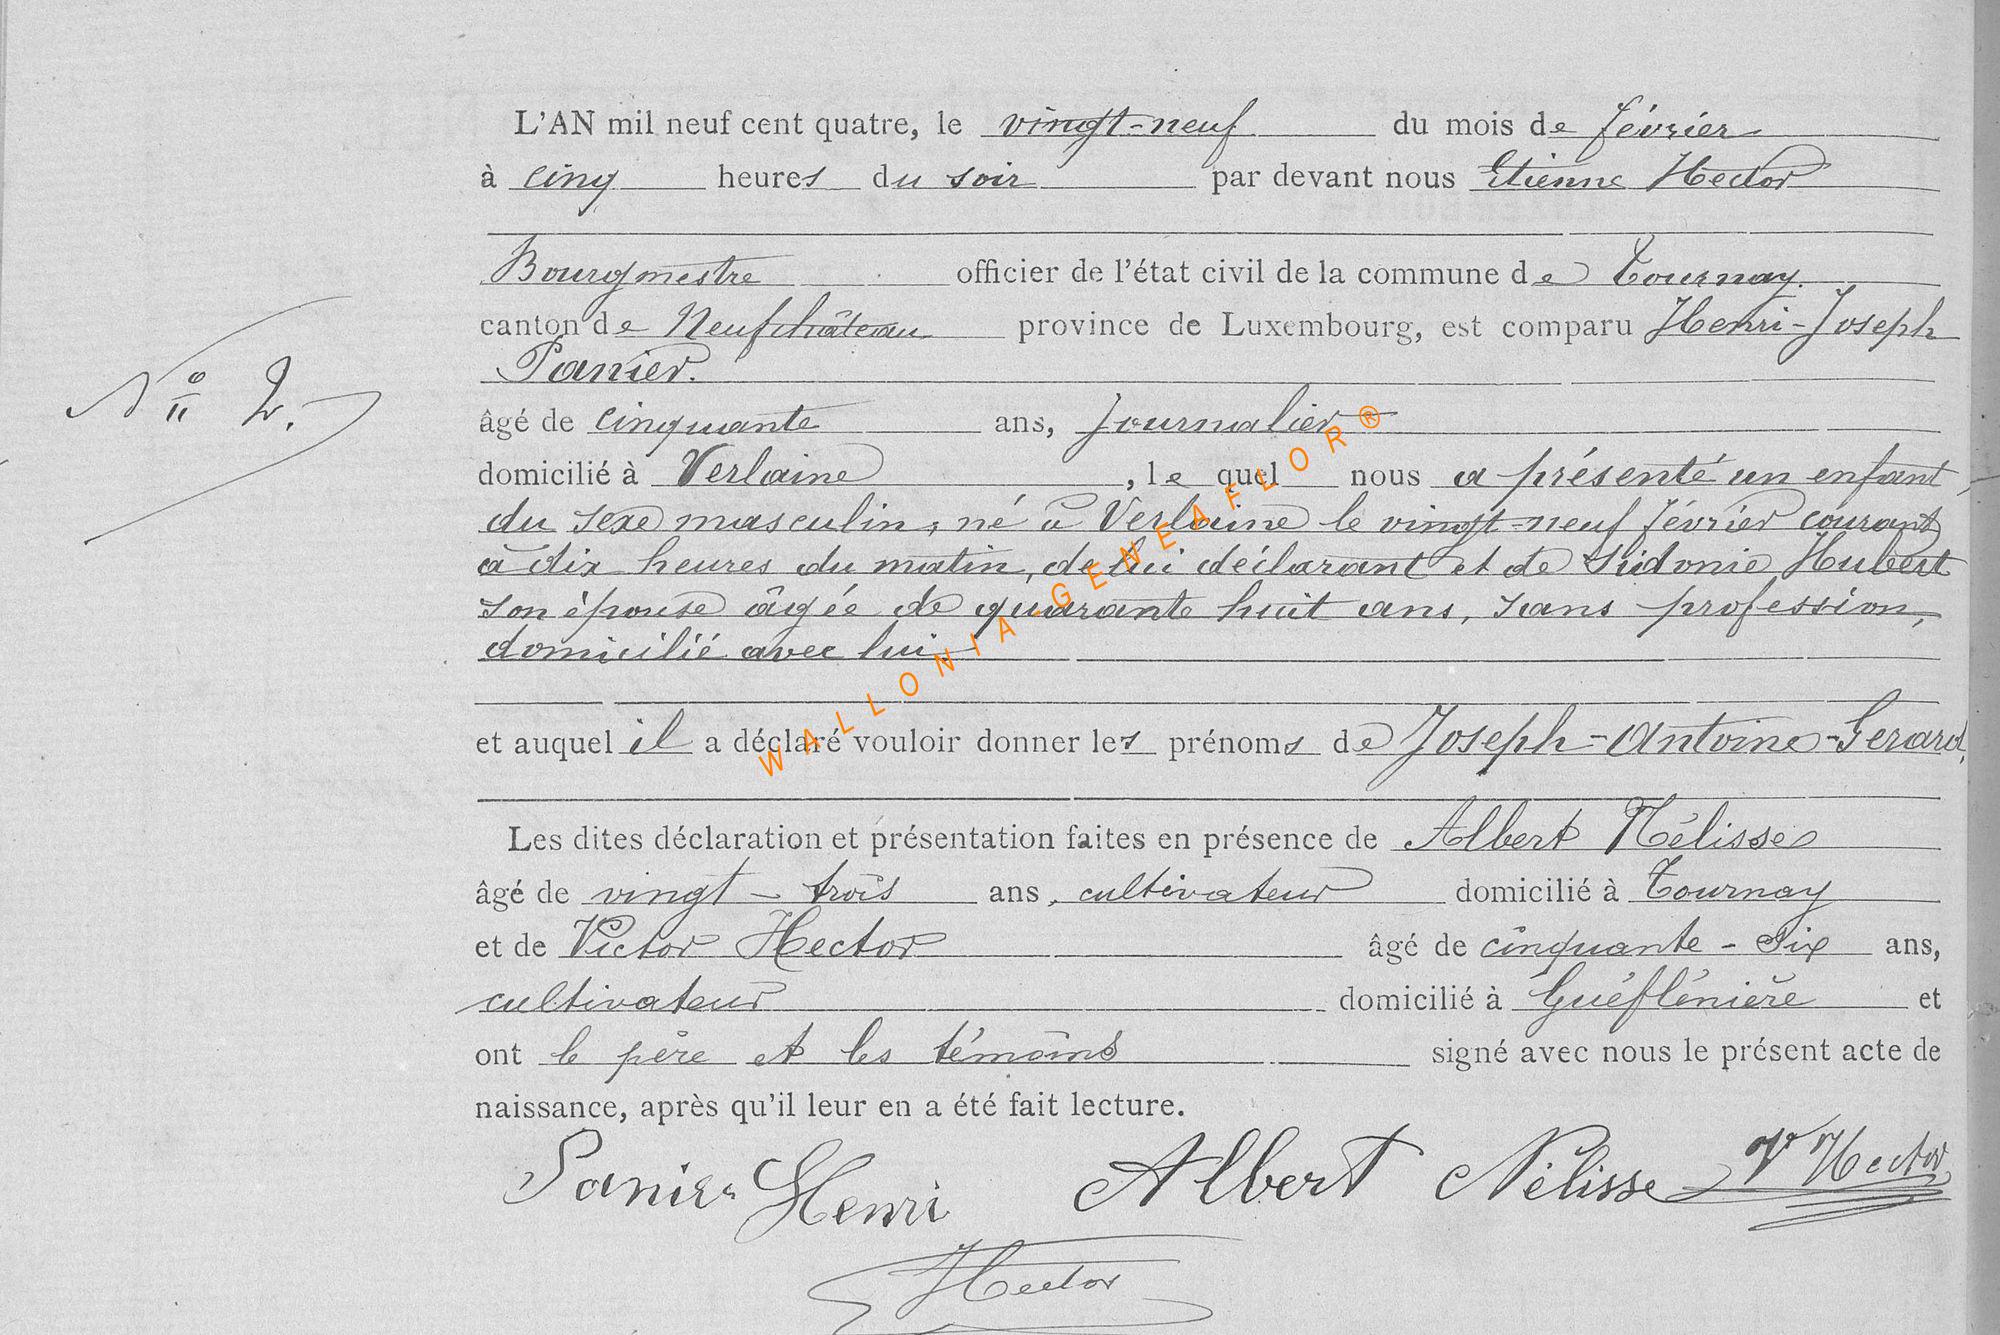 L'AN mil neuf cent quatre, le vingt-neuf du mois de février
à cinq heures du soir par devant nous Etienne Hector
Bourgmestre officier de l'état civil de la commune de Tournay.
canton de Neufchâteau province de Luxembourg, est comparu Henri-Joseph
Panier.
N° 2.
âgé de cinquante ans, Journalier
domicilié à Verlaine, le quel nous a présenté un enfant
du sexe masculin, né à Verlaine le vingt-neuf février courant
à dix heures du matin, de lui déclarant et de Sidonie Hubert
son épouse âgée de quarante huit ans, sans profession,
domicilié avec lui.
et auquel il a déclaré vouloir donner les prénoms de Joseph-Antoine-Gerard,
WALLONIA-GENEAFLOR®
Les dites déclaration et présentation faites en présence de Albert Nélisse
âgé de vingt-trois ans, cultivateur domicilié à Tournay
et de Victor Hector âgé de cinquante-six ans,
cultivateur domicilié à Guéflénière et
ont le père et les témoins signé avec nous le présent acte de
naissance, après qu'il leur en a été fait lecture.
Panier Henri Albert Nélisse V Hector
Hector